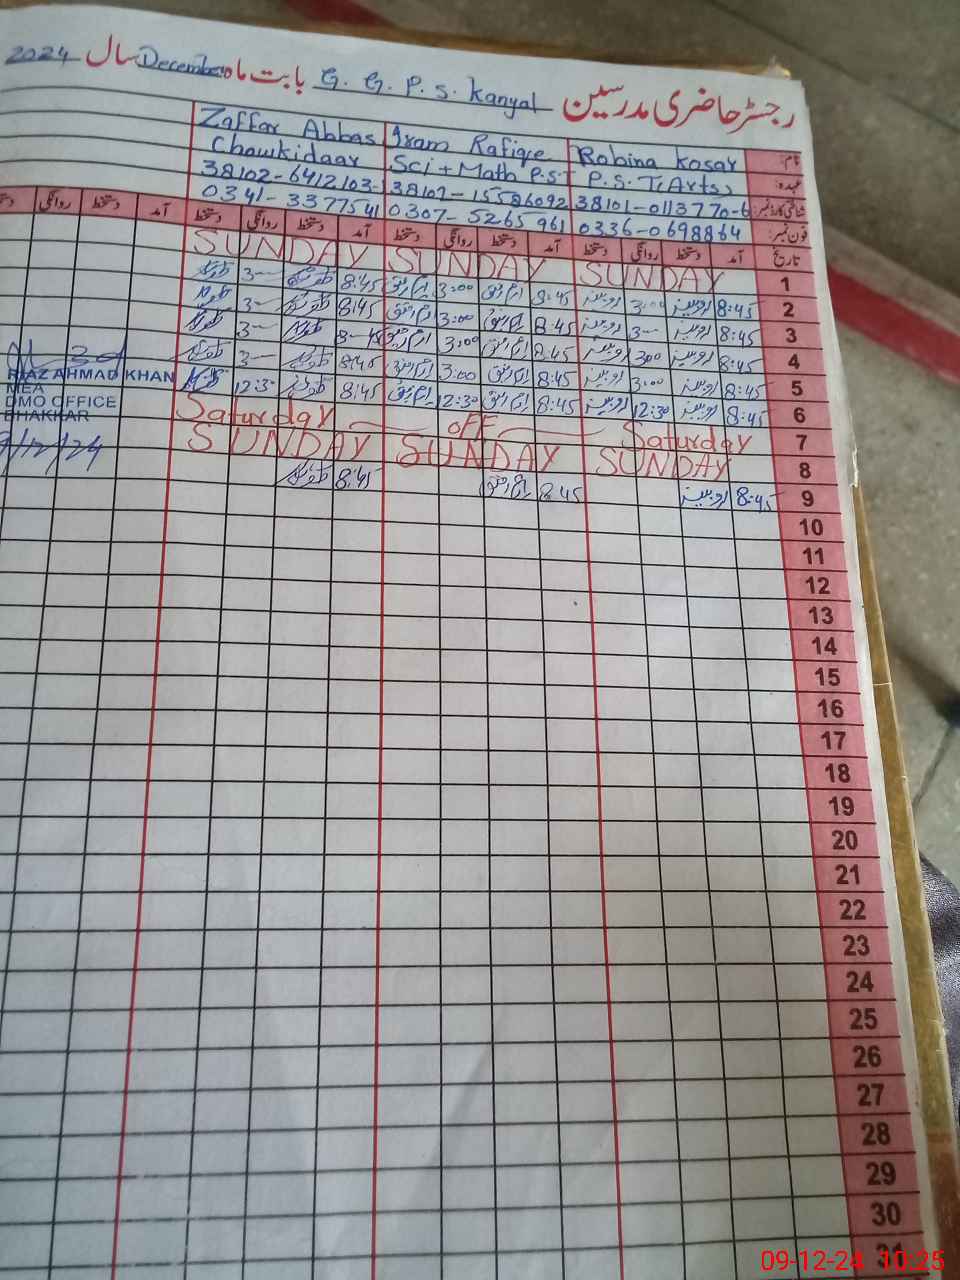 رجسٹر حاضری مدرسین G. G. P. S. Kanyal بابت ماہ December سال 2024
نام: Robina Kosar Iram Rafiqe Zaffar Abbas
عہدہ: P.S.T(Arts) Sci + Math P.S.T Chowkidaar
شناختی کارڈ نمبر: 38101-0113770-6 38102-6412103-
فون نمبر: 0336-0698864 0307-5265961 0341-3377541
تاریخ آمد دستخط روانگی دستخط آمد دستخط روانگی دستخط آمد دستخط روانگی دستخط آمد دستخط روانگی
1 SUNDAY SUNDAY SUNDAY
2 8:45 روبینہ 3:00 روبینہ 8:45 ارم رفیق 3:00 ارم رفیق 8:45 3—
3 8:45 روبینہ 3— روبینہ 8:45 ارم رفیق 3:00 ارم رفیق 8:45 3—
4 8:45 روبینہ 3:00 روبینہ 8:45 ارم رفیق 3:00 ارم رفیق 3—
5 8:45 روبینہ 3:00 روبینہ 8:45 ارم رفیق 3:00 ارم رفیق 8:45 3—
6 8:45 روبینہ 12:30 روبینہ 8:45 ارم رفیق 12:30 ارم رفیق 8:45 12:30
7 Saturday — OFF — Saturday
8 SUNDAY SUNDAY SUNDAY
9 8:45 روبینہ 8:45 ارم رفیق 8:45
10
11
12
13
14
15
16
17
18
19
20
21
22
23
24
25
26
27
28
29
30
31
RIAZ AHMAD KHAN
MEA
DMO OFFICE
BHAKKAR
/12/24
09-12-24 10:25